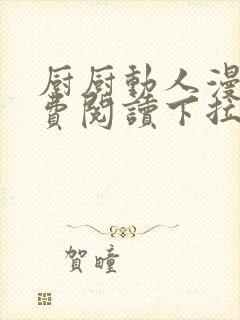 厨厨動人漫
費閱讀下拉
賀瞳